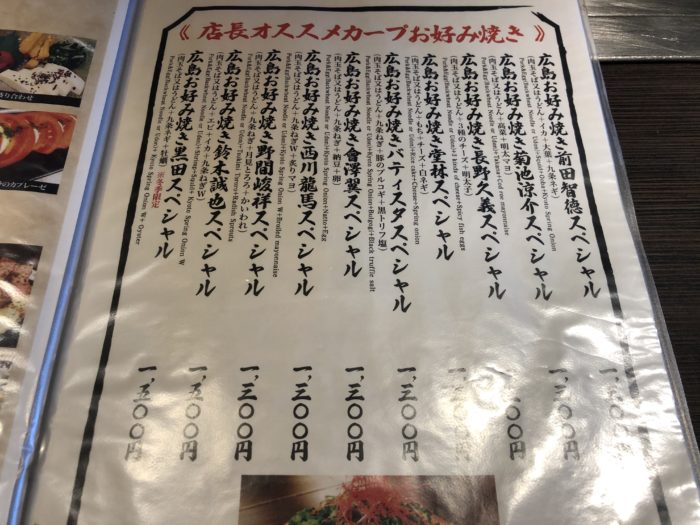 《 店長オススメカープお好み焼き 》
広島お好み焼き前田智徳スペシャル
(肉玉そば又はうどん+イカ+大葉+九条ネギ)
一、三〇〇円
広島お好み焼き菊池涼介スペシャル
(肉玉そば又はうどん+高菜+明太マヨ)
広島お好み焼き長野久義スペシャル
(肉玉そば又はうどん+3種のチーズ+明太子)
広島お好み焼き堂林スペシャル
(肉玉そば又はうどん+もち+チーズ+白ネギ)
一、三〇〇円
広島お好み焼きバティスタスペシャル
(肉玉そば又はうどん+九条ねぎ+豚のプルコギ+黒トリフ塩)
Pork&Egg(Buckwheat Noodle or Udon)+Kyoto Spring Onion+Bulgogi+Black truffle salt
一、三〇〇円
広島お好み焼き會澤翼スペシャル
(肉玉そば又はうどん+九条ねぎ+納豆+卵)
Pork&Egg(Buckwheat Noodle or Udon)+Kyoto Spring Onion+Natto+Egg
一、三〇〇円
広島お好み焼き西川龍馬スペシャル
(肉玉そば又はうどん+九条ねぎW+炙りマヨ)
Pork&Egg(Buckwheat Noodle or Udon)+Kyoto Spring Onion W+Broiled mayonnaise
一、三〇〇円
広島お好み焼き野間峻祥スペシャル
(肉玉そば又はうどん+月見とろろ+かいわれ)
一、三〇〇円
広島お好み焼き鈴木誠也スペシャル
(肉玉そば又はうどん+エビ+イカ+九条ねぎW)
一、五〇〇円
広島お好み焼き黒田スペシャル
(肉玉そば又はうどん+九条ネギ+牡蠣) ※冬季限定
一、五〇〇円
り合わせ
のカプレーゼ